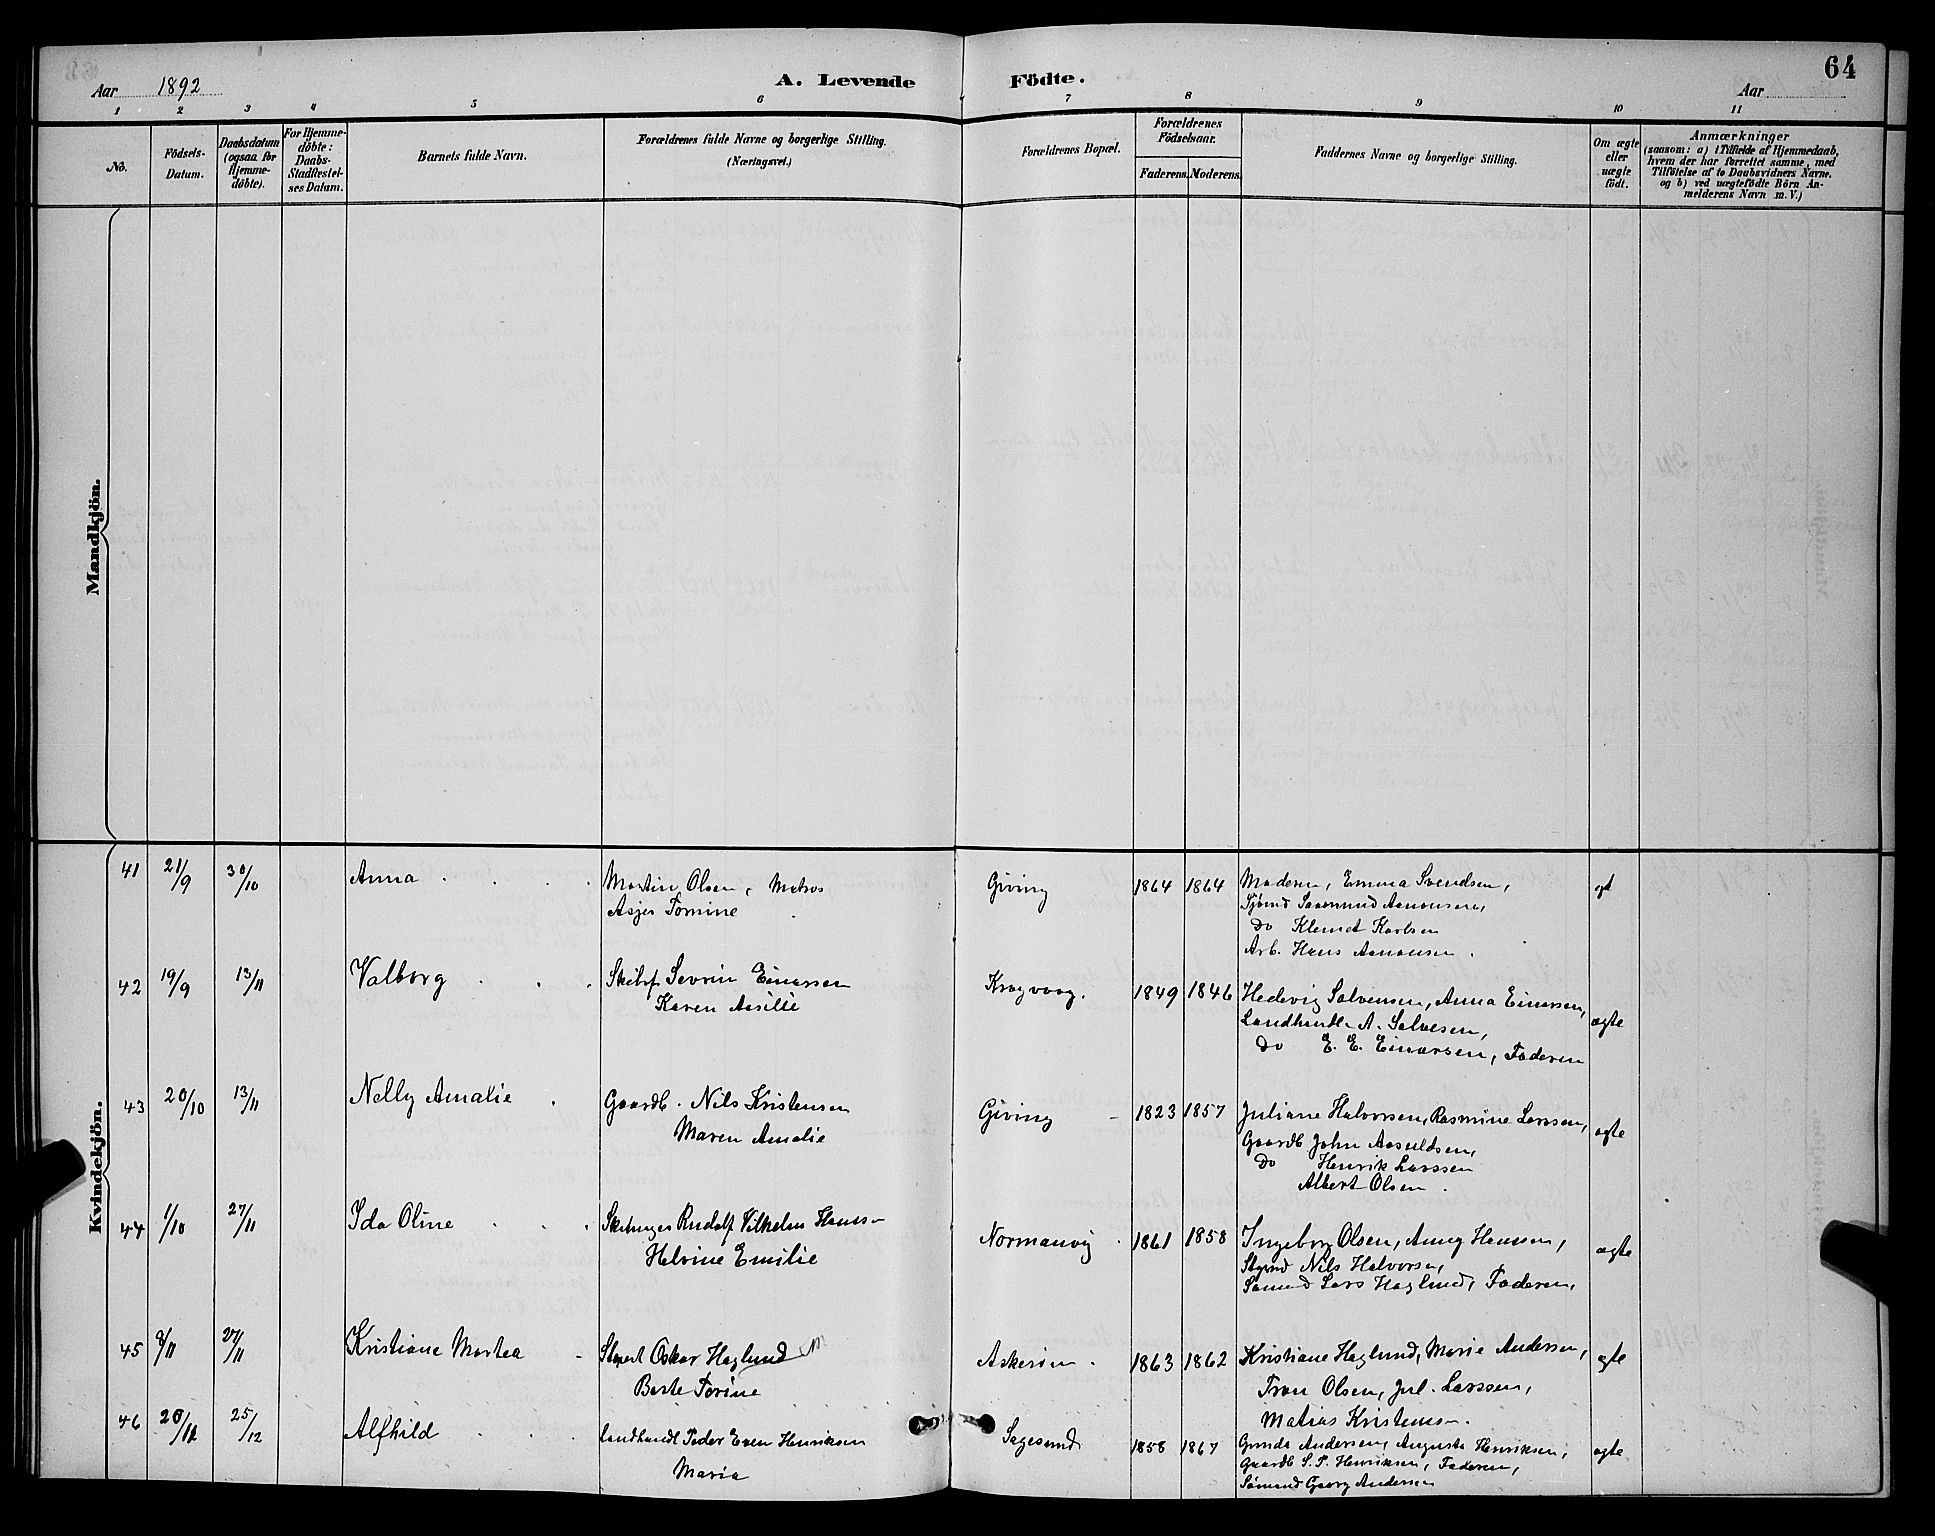 64
Aar 1892
A. Levende Födte.
Aar
1 2 3 4 5 6 7 8 9 10 11
No.
Födsels-Datum.
Daabsdatum (ogsaa for Hjemme-döbte).
For Hjemme-döbte: Daabs-Stadfestel-ses Datum.
Barnets fulde Navn.
Forældrenes fulde Navne og borgerlige Stilling.
(Næringsvei.)
Forældrenes Bopæl.
Forældrenes Födselsaar.
Faderens. Moderens.
Faddernes Navne og borgerlige Stilling.
Om ægte eller uægte födt.
Anmærkninger
(saasom: a) i Tilfælde af Hjemmedaab,
hvem der har forrettet samme, med
Tilföielse af to Daabsvidners Navne.
og b) ved uægtefödte Börn An-
melderens Navn m. V.)
Mandkjön.
Kvindekjön.
41 21/9 30/10 Anna Martin Olsen, Matros Giving 1864 1864 Moderen, Emma Svendsen,
Asjer Tomine Sjømd Saamund Aanonsen,
Do Klemet Karlsen
Arb. Hans Aanonsen.
42 19/9 13/11 Valborg Skibsf Sevrin Einarsen Kragvaag. 1849 1846 Hedevig Salvensen, Anna Einarsen, ægte
Karen Asilie Landhandl. A. Salvesen,
Do E. E. Einarsen, Faderen
43 20/10 13/11 Nelly Amalie Gaardb. Nils Kristensen Giving 1823 1857 Juliane Halvorsen, Rasmine Larssen, ægte
Maren Amalie Gaardb John Aasuldsen,
Do Henrik Larssen
Albert Olsen.
44 1/10 27/11 Ida Oline Rudolf Vilhelm Hanss- Normanvig 1861 1858 Ingeborg Olsen, Aney Hanssen, ægte
Helvine Emilie Nils Halvorsen,
Sømand Lars Haglund, Faderen,
45 8/11 27/11 Kristiane Martea Oskar Haglund Askerøen. 1863 1862 Kristiane Haglund, Marie Andersen, ægte
Berte Torine Tron Olsen, Jul. Larssen,
Matias Kristenss-.
46 25/12 Alfhild Landhandl Peder Even Henriksen Sagesund 1858 1867 Gunda Andersen, Augusta Henriksen, ægte
Maria Gaardb S. P. Henriksen, Faderen,
Sømand Georg Andersen